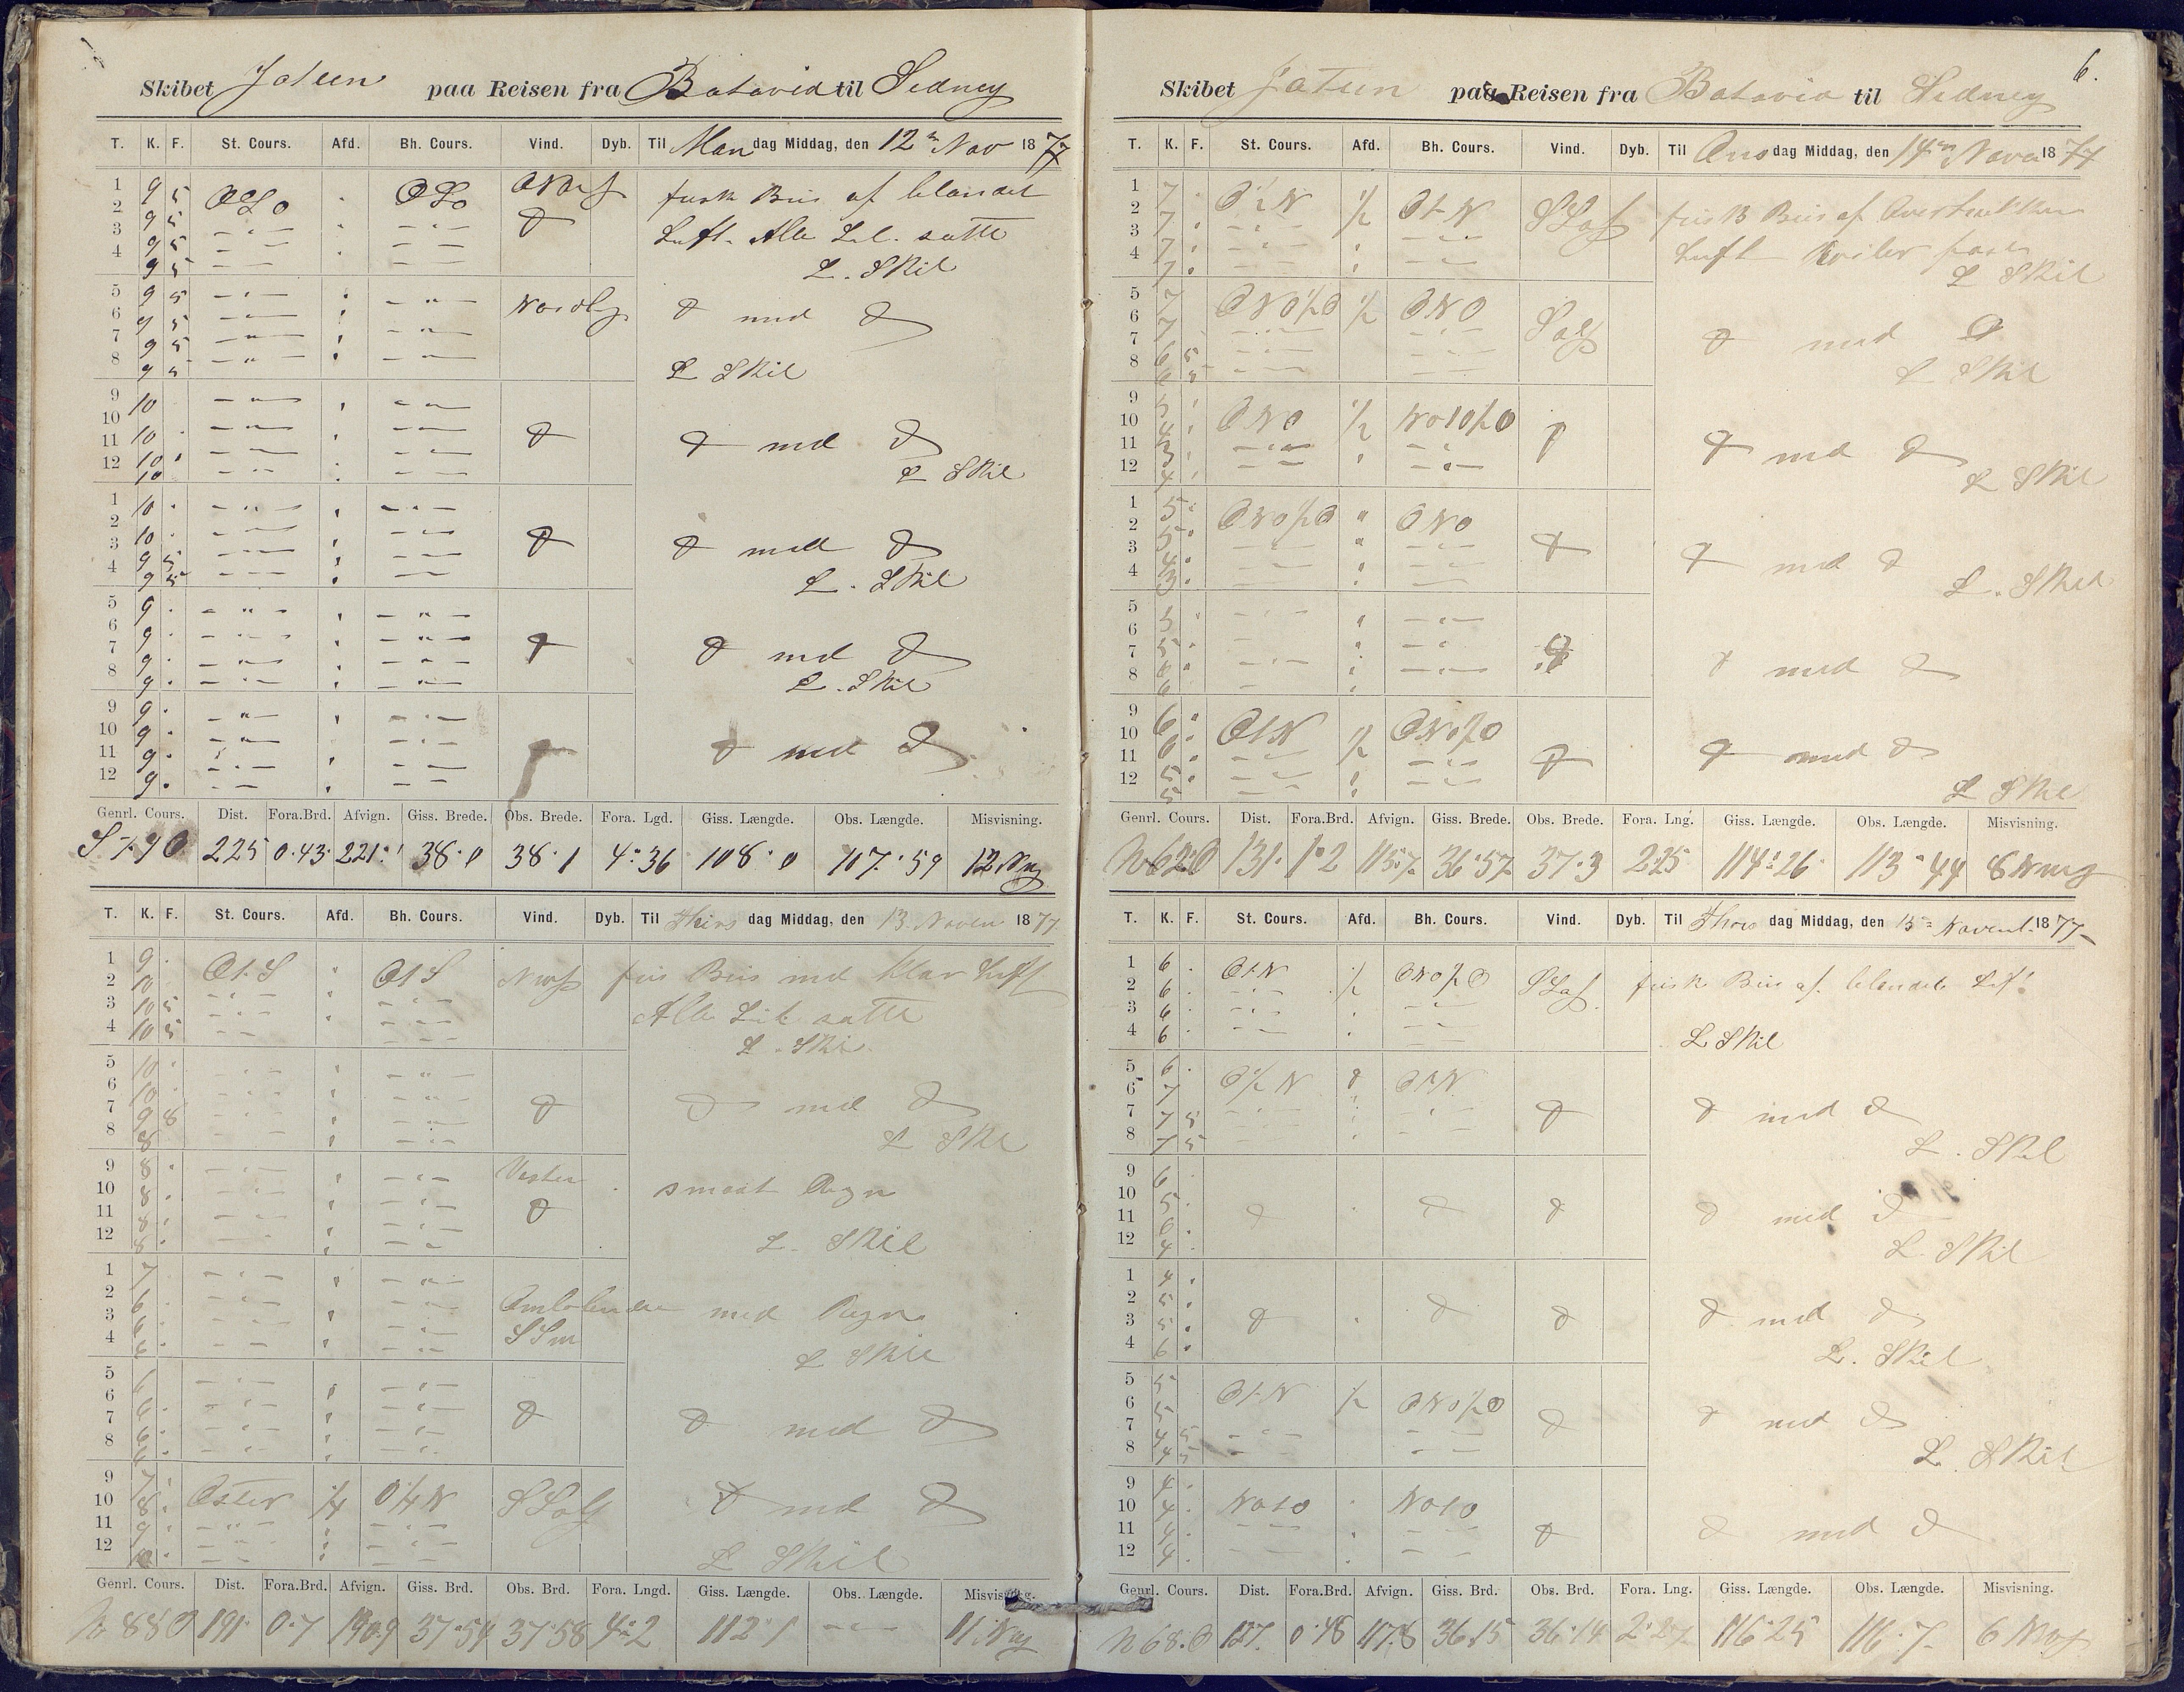 Skibet Jotun paa Reisen fra Batavia til Sidney
T. K. F. St. Cours. Afd. Bh. Cours. Vind. Dyb. Til Man dag Middag, den 12te Nov 1877
1 9 5 OSO OSO
2 9 5
3 9 5
4 9 5
frisk Bris af blandet
Luft. Alle Seil. satte
L. Skil
5 9 5 Nordlig
6 9 5
7 9 5
8 9 5
D med D
L Skil
9 10
10 10
11 10
12 10
D med D
L Skil
1 10
2 10
3 9 5
4 9 5
D med D
L. Skil
5 9
6 9
7 9
8 9
D med D
L. Skil
9 9
10 9
11 9
12 9
D med D
Genrl. Cours. Dist. Fora.Brd. Afvign. Giss. Brede. Obs. Brede. Fora. Lgd. Giss. Længde. Obs. Længde. Misvisning.
S 79 O 225 0°43 221 38°0 38°1 4°36 108°0 107°59 12
T. K. F. St. Cours. Afd. Bh. Cours. Vind. Dyb. Til Tirs dag Middag, den 13. Novem 1877
1 9 OtS OtS
2 10
3 10 5
4 10 5
fris Bris med klar Luft
Alle Seil satte
L. Skil
5 10
6 10
7 9 8
8 8
D med D
L Skil
9 8 Vesten
10 8
11 8
12 8
smaat Regn
L. Skil
1 7
2 6
3 6
4 6
Omløbende med Regn
L Skil
5 6
6 6
7 6
8 6
D med D
9 7 Oster 1/4 O 1/4 N
10 8
11 9
12
D med D
L Skil
Genrl. Cours. Dist. Fora.Brd. Afvign. Giss. Brd. Obs. Brd. Fora. Lngd. Giss. Længde. Obs. Længde. Misvisning.
N 88 O 191 0°7 190.9 37°54 37°58 4°2 112°1 11
6.
Skibet Jotun paa Reisen fra Batavia til Sidney
T. K. F. St. Cours. Afd. Bh. Cours. Vind. Dyb. Til Ons dag Middag, den 14 Nove 1877
1 7 O 1/2 N 1/2 OtN
2 7
3 7
4 7
frisk Bris af Overtrukken
Luft
L Skil
5 7 ONO 1/2 O 1/2 ONO
6 7
7 6 5
8 6 5
D med D
L Skil
9 5 ONO 1/2
10 4
11 3
12 4
D med D
L Skil
1 5 ONO 1/2 O ONO
2 5
3 4
4 3
D med D
L. Skil
5 3
6 5
7 6
8 6
D med D
9 6 OtN 1/2 ONO 1/2 O
10 6
11 5
12 5
D med D
L Skil
Genrl. Cours. Dist. Fora.Brd. Afvign. Giss. Brede. Obs. Brede. Fora. Lng. Giss. Længde. Obs. Længde. Misvisning.
N 62 O 131 1°2 115.7 36°57 37°3 2°25 114°26 113°44 8
T. K. F. St. Cours. Afd. Bh. Cours. Vind. Dyb. Til Thors dag Middag, den 15 Novemb. 1877
1 6 OtN 1/2 ONO 1/2 O
2 6
3 6
4 6
frisk Bris af blandet Luft
L Skil
5 6 O 1/2 N OtN
6 7
7 7 5
8 7 5
D med D
L. Skil
9 6
10 5
11 6
12 4
D med D
L. Skil
1 4
2 5
3 5
4 6
D med D
L. Skil
5 5 OtN 1/2 ONO 1/2 O
6 5
7 4 5
8 4 5
D med D
L. Skil
9 4 NOtO NOtO
10 4
11 4
12 4
D med D
Genrl. Cours. Dist. Fora.Brd. Afvign. Giss. Brd. Obs. Brd. Fora. Lng. Giss. Længde. Obs. Længde. Misvisning.
N 68 O 127 0°48 117.8 36°15 36°14 2°27 116°25 116°7 6